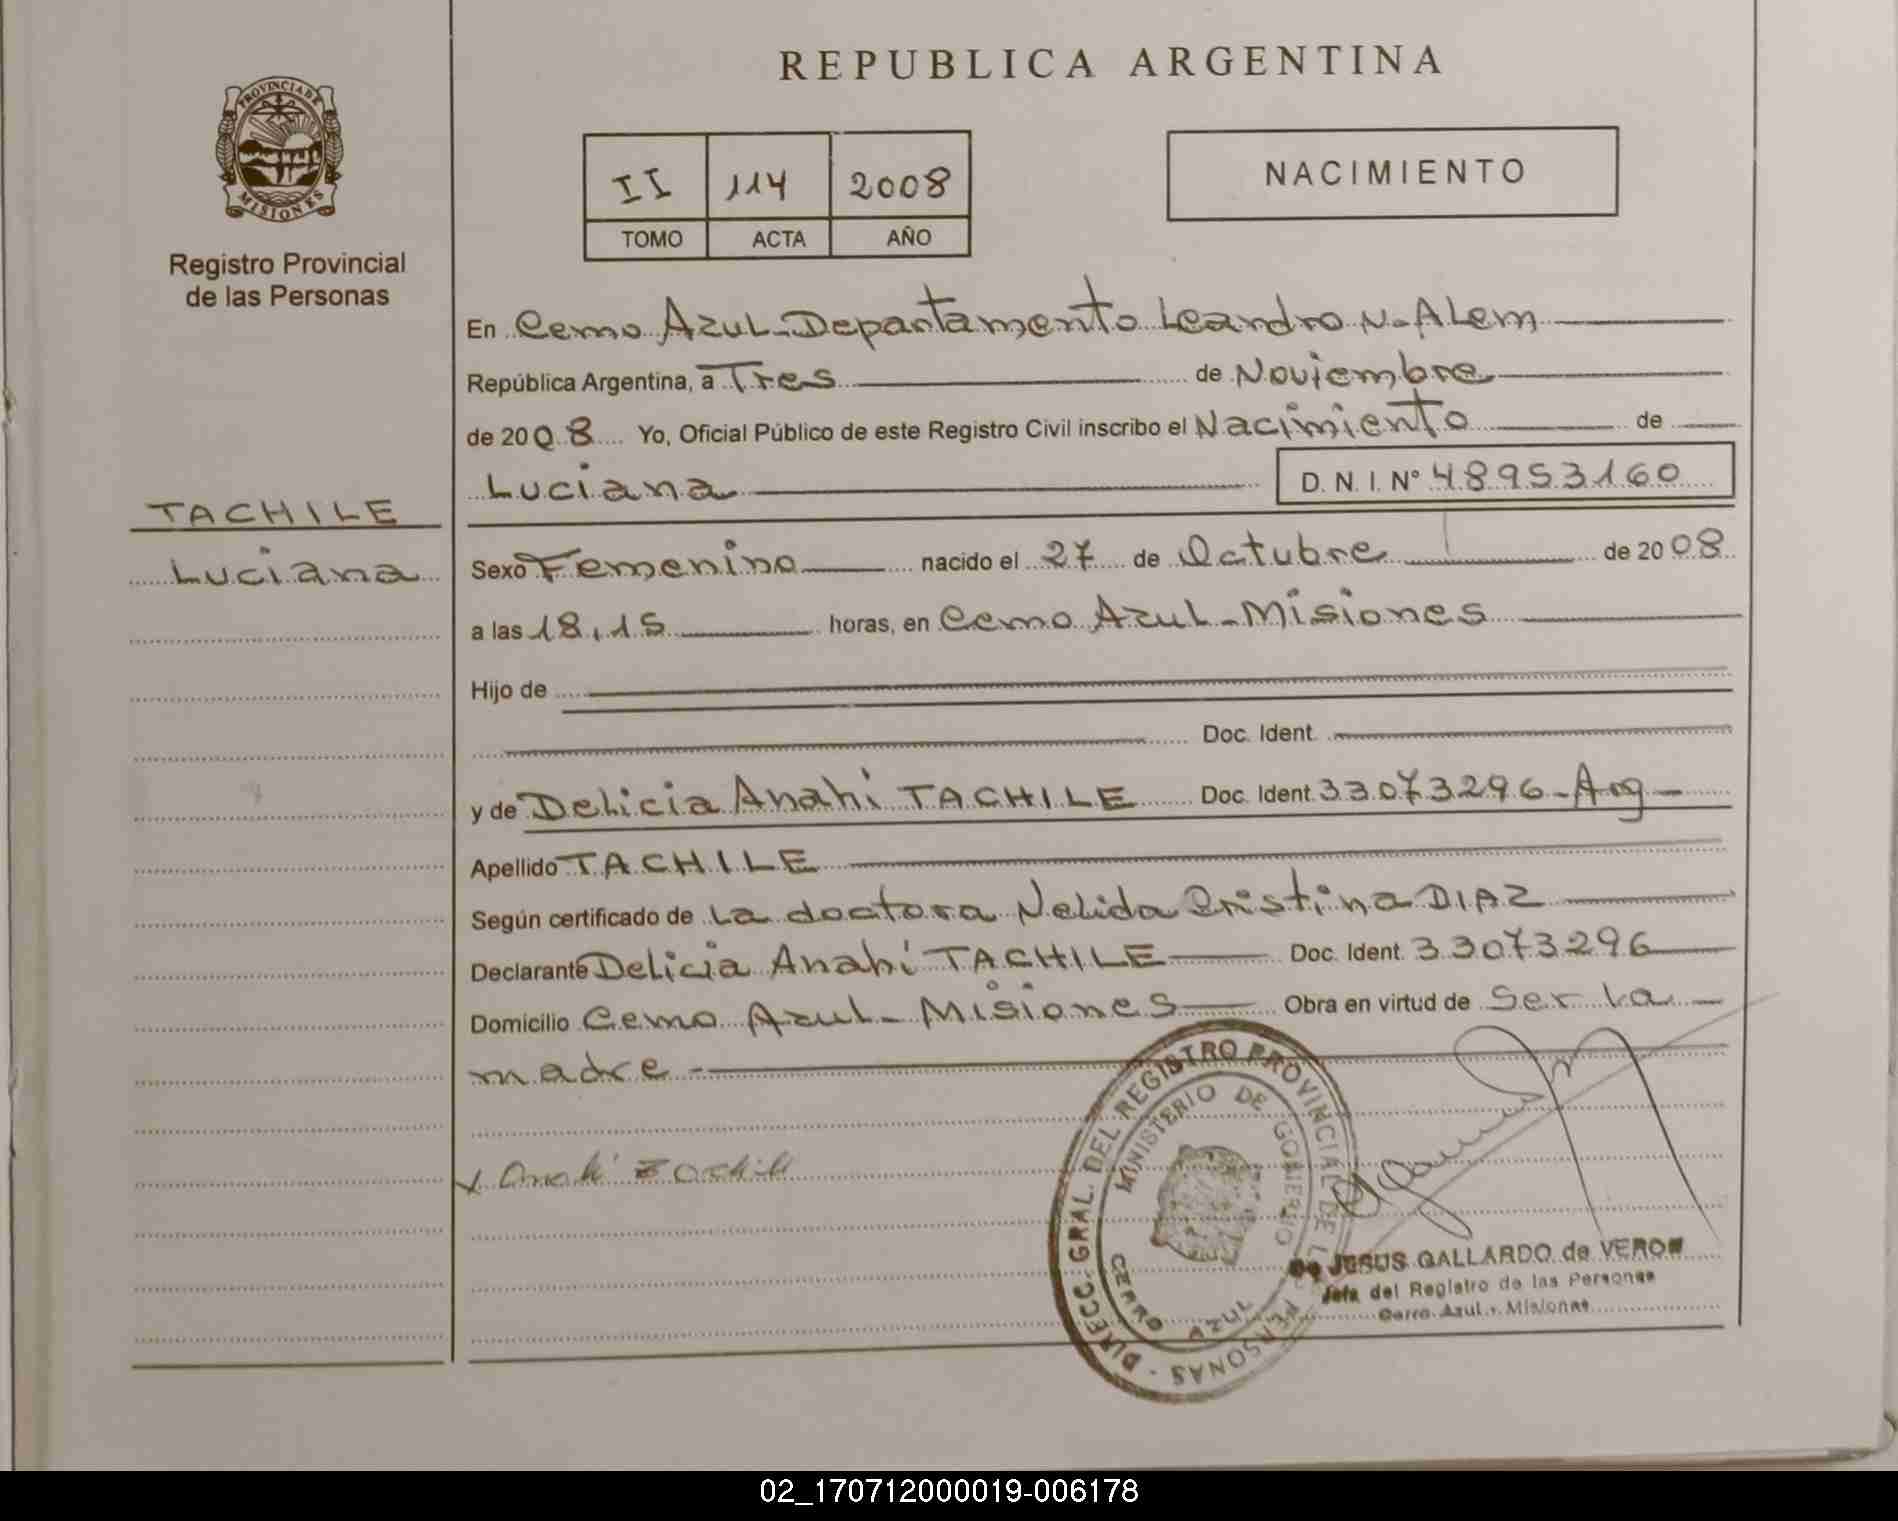 REPUBLICA ARGENTINA
PROVINCIA DE
MISIONES
Registro Provincial
de las Personas
II 114 2008
TOMO ACTA AÑO
NACIMIENTO
En Cerro Azul-Departamento Leandro N-Alem
República Argentina, a Tres de Noviembre
de 2008 Yo, Oficial Público de este Registro Civil inscribo el Nacimiento de
Luciana D. N. I. Nº 48953160
TACHILE
Luciana
Sexo Femenino nacido el 27 de Octubre de 2008
a las 18,15 horas, en Cerro Azul-Misiones
Hijo de
Doc. Ident.
y de Delicia Anahi TACHILE Doc. Ident. 33073296-Arg-
Apellido TACHILE
Según certificado de La doctora Nelida Cristina DIAZ
Declarante Delicia Anahi TACHILE Doc. Ident. 33073296
Domicilio Cerro Azul-Misiones Obra en virtud de Ser La
madre
Anahi
DIRECC. GRAL. DEL REGISTRO PROVINCIAL DE LAS PERSONAS
MINISTERIO DE GOBIERNO
CERRO AZUL
JESUS GALLARDO de VERON
Jefa del Registro de las Personas
Cerro Azul - Misiones
02_170712000019-006178